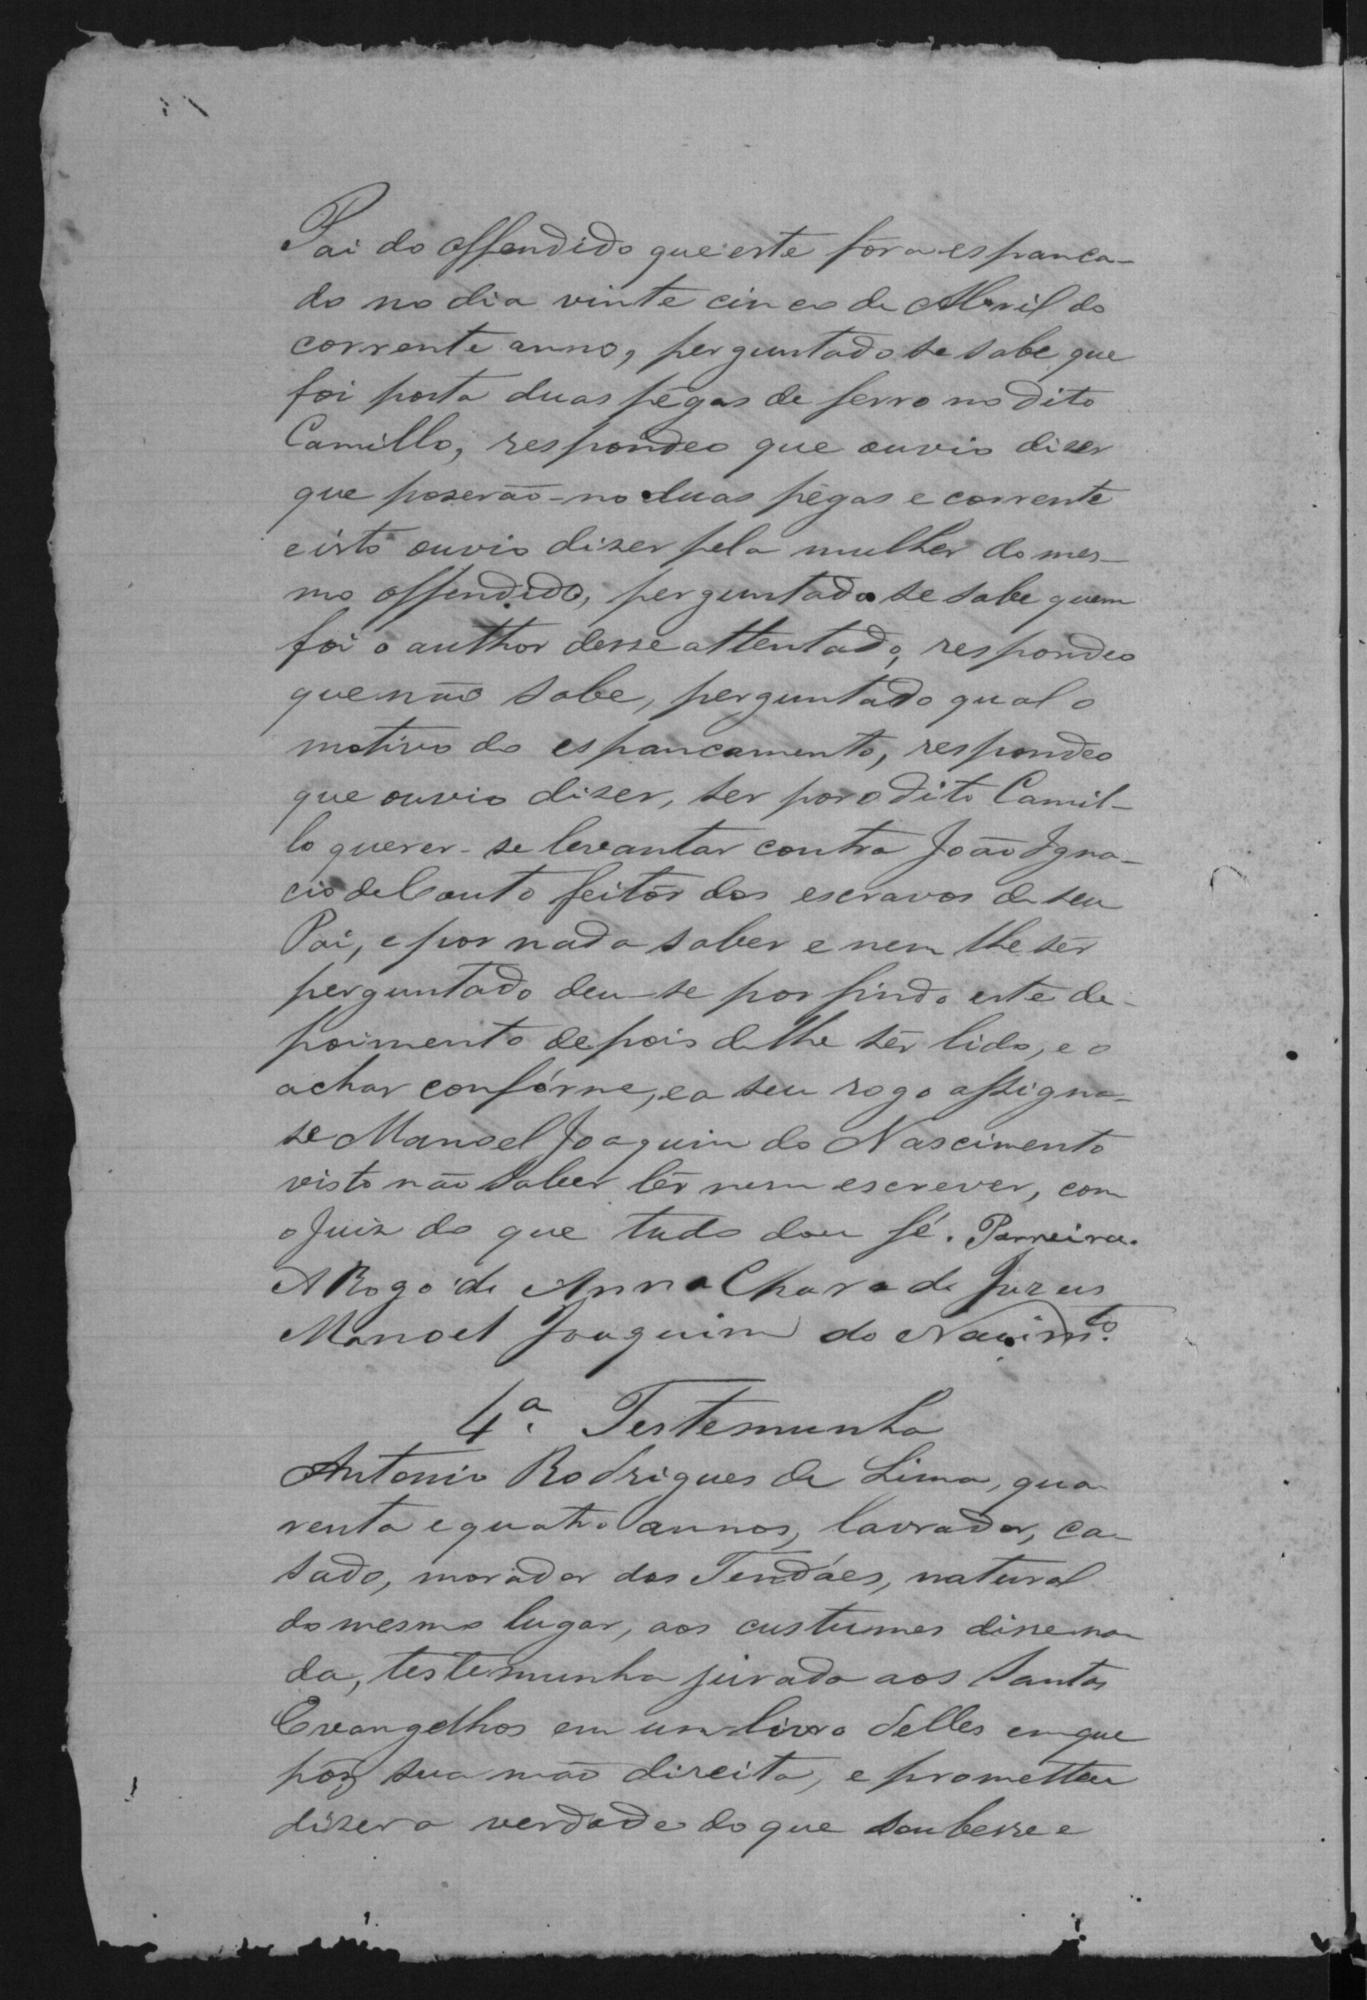 Pai do offendido que este fôra espanca-
do no dia vinte cinco de Abril do
corrente anno, perguntado se sabe que
foi posta duas pégas de ferro no dito
Camillo, respondeo que ouvio diser
que poserão-no duas pégas e corrente
e isto ouvio diser pela mulher do mes-
mo offendido, perguntado se sabe quem
foi o author desse attentado, respondeo
que não sabe, perguntado qual o
motivo do espancamento, respondeo
que ouvio diser, ser por o dito Camil-
lo querer-se levantar contra João Igna-
cio de Couto feitôr dos escravos de seu
Pai, e por nada saber e nem lhe sêr
perguntado deu-se por findo este de-
poimento depois de lhe sêr lido, e o
achar confórme, e a seu rogo assigna-
se Manoel Joaquim do Nascimento
visto não saber lêr nem escrever, com
o Juiz do que tudo dou fé. Parreira.
A Rogo de Anna Chara de Juzus
Manoel Joaquim do Nacimto.
4a. Testemunha
Antonio Rodrigues de Lima, qua-
renta e quatro annos, lavrador, ca-
sado, morador dos Tendáes, natural
do mesmo lugar, aos custumes disse na-
da, testemunha jurada aos Santos
Evangelhos em um livro delles em que
pôz sua mão direita, e prometteu
diser a verdade do que soubesse e